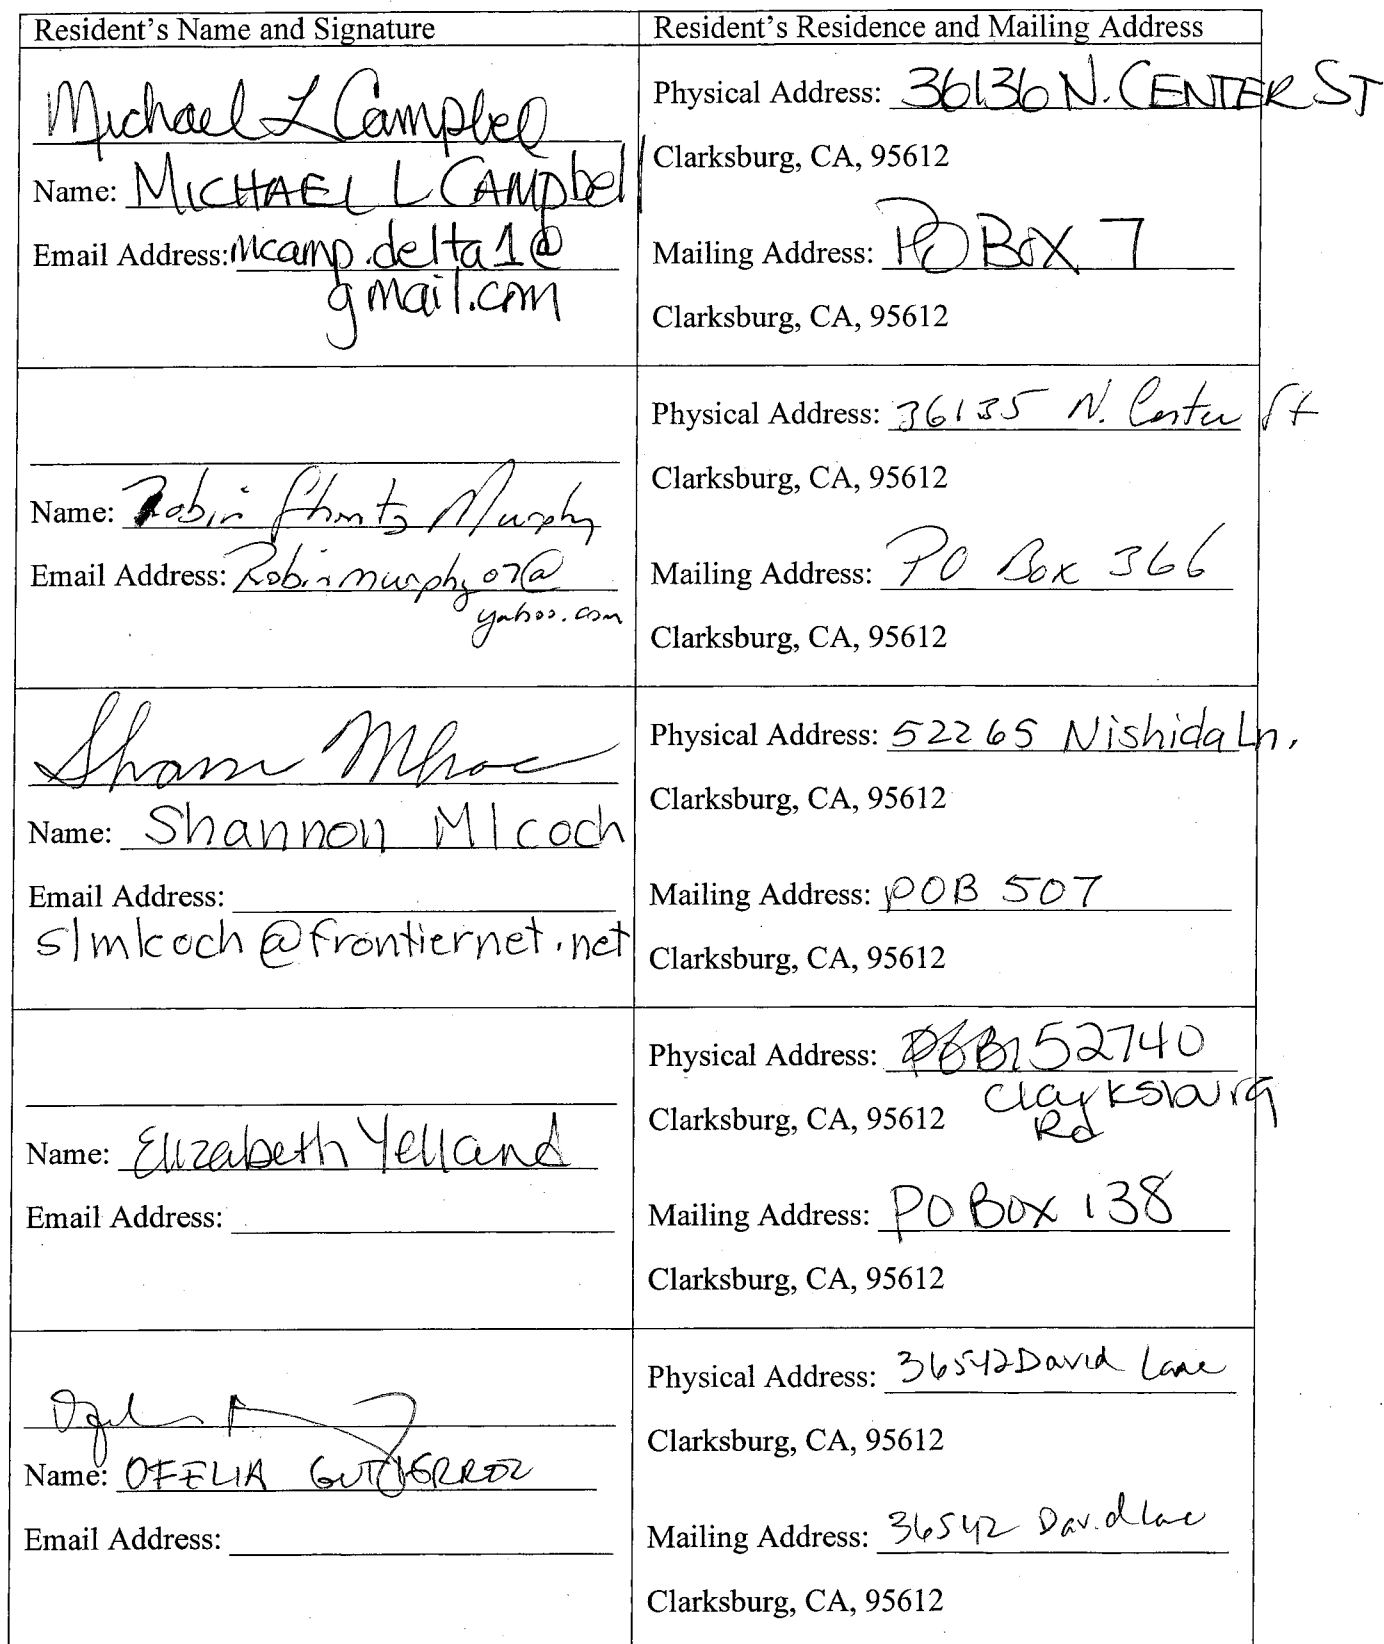 Resident's Name and Signature
Resident's Residence and Mailing Address
Michael L Campbell
Name: MICHAEL L CAMPbell
Email Address: mcamp.delta1@
gmail.com
Physical Address: 36136 N. CENTER ST
Clarksburg, CA, 95612
Mailing Address: PO BOX 7
Clarksburg, CA, 95612
Name: Robin Murphy
Email Address: Robinmurphy07@
yahoo.com
Physical Address: 36135 N. Center St
Clarksburg, CA, 95612
Mailing Address: PO Box 366
Clarksburg, CA, 95612
Name: Shannon Mlcoch
Email Address:
slmlcoch@frontiernet.net
Physical Address: 52265 Nishida Ln.
Clarksburg, CA, 95612
Mailing Address: POB 507
Clarksburg, CA, 95612
Name: Elizabeth Yelland
Email Address:
Physical Address: 52740
Clarksburg
Rd
Clarksburg, CA, 95612
Mailing Address: PO Box 138
Clarksburg, CA, 95612
Name: OFELIA GUTIERREZ
Email Address:
Physical Address: 36542 David Lane
Clarksburg, CA, 95612
Mailing Address: 36542 David Lane
Clarksburg, CA, 95612